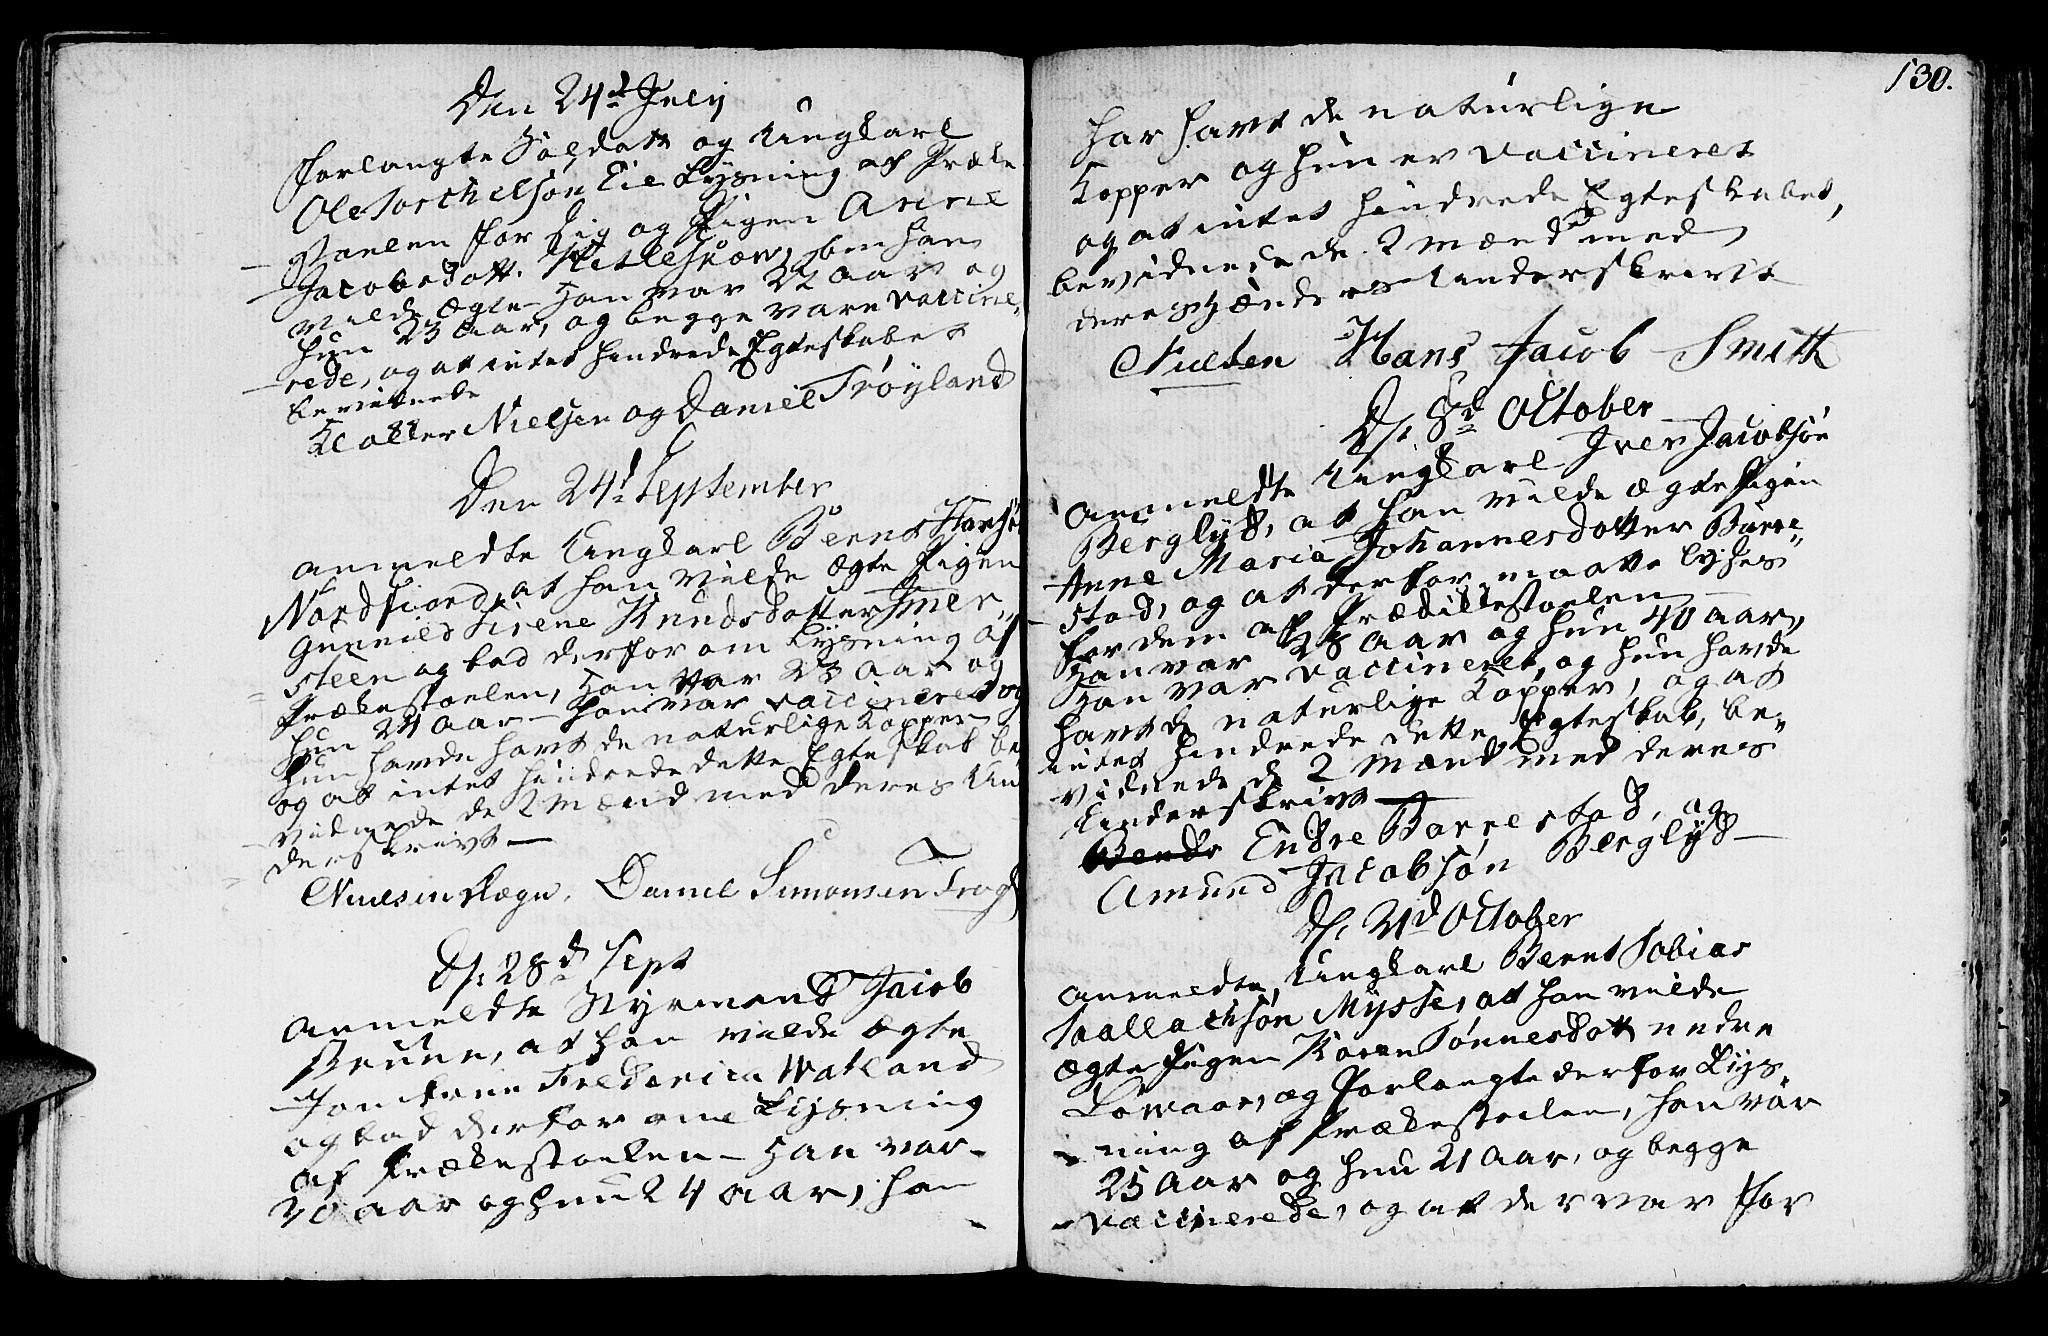 Den 24d July
forlangte Soldatt og Ungkarl
Ole Torchelsøn Eie Lysning af Præke
stoelen for sig og Pigen Anne
Jacobsdott. som han
vilde ægte. Han var 22 aar og
hun 23 aar, og begge vare vaccine
rede, og at intet hindrede Egteskabet
bevidnede
Nielsen og Daniel Trøyland
Den 24d September
anmeldte Ungkarl Bernt Hansøn
Nordfiord, at han vilde ægte Pigen
Gunnild Sirene Knudsdotter Imer
steen og bad derfor om Lysning af
Prækestoelen, Han var 23 aar og
hun 24 aar – Han var vaccineret og
hun havde havt de naturlige Kopper
og at intet hindrede dette Egteskab be
vidnede de 2 Mænd med deres Un
derskrivt –
Daniel Simonsen
D. 28d Sept
anmeldte Styrmand Jacob
Bruun, at han vilde ægte
Jomfrue Frederica Watland
og bad derfor om Lysning
af Prækestoelen – Han var
30 aar og hun 24 aar, han
130.
har havt de naturlige
Kopper og hun er vaccineret
og at intet hindrede Egteskabet,
bevidnede de 2 Mænd med
deres Hænders Underskrivt
Hans Jacob Smith
D. 8d October
anmeldte Ungkarl Iver Jacobsøn
Berglyd, at han vilde ægte Pigen
Anne Maria Johannesdotter Barre
stad, og at derfor maatte lyses
for dem af Prædikestoelen –
Han var 28 aar og hun 40 aar,
Han var vaccineret, og hun havde
havt d naturlige Kopper, og at
intet hindrede dette Egteskab, be
vidnede d 2 Mænd med deres
Underskrivt –
Endre Barrestad, og
Amund Jacobsøn Berglyd –
D. 21d October
anmeldte Ungkarl Bernt Tobias
Tallachsøn Mysse, at han vilde
ægte Pigen Karen Tønnesdott nedre
Lowaas, og forlangte derfor Lys
ning af Prækestoelen, han var
25 Aar og hun 21 Aar, og begge
vaccinerede, og at der var for